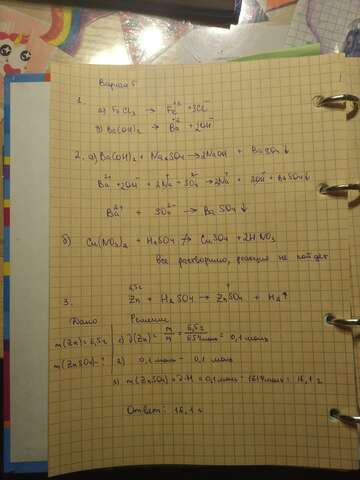 Вариант 5
1.
а) FeCl₃ → Fe⁺³ + 3Cl⁻
б) Ba(OH)₂ → Ba⁺² + 2OH⁻
2. а) Ba(OH)₂ + Na₂SO₄ → 2NaOH + BaSO₄↓
Ba²⁺ + 2OH⁻ + 2Na⁺ + SO₄²⁻ → 2Na⁺ + 2OH⁻ + BaSO₄↓
Ba²⁺ + SO₄²⁻ → BaSO₄↓
б) Cu(NO₃)₂ + H₂SO₄ ↛ CuSO₄ + 2HNO₃
все растворимо, реакция не пойдет
6,5г ?
3. Zn + H₂SO₄ → ZnSO₄ + H₂↑
Дано Решение
m(Zn) = 6,5г 1) ∂(Zn) = m/M = 6,5г = 0,1 моль
m(ZnSO₄) - ? 2) 0,1 моль 0,1 моль
3) m(ZnSO₄) = ∂·M = 0,1 моль · = 16,1 г
Ответ: 16,1 г